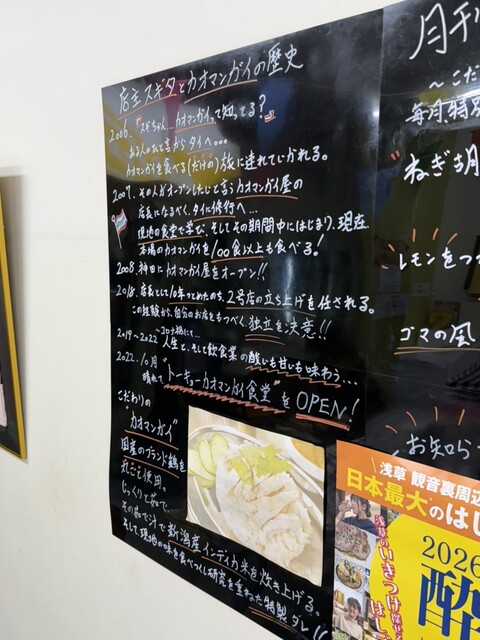 店主スギタとカオマンガイの歴史
2006. "スギちゃん…カオマンガイって知ってる?"
ある人のひと言からタイへ…
カオマンガイを食べる(だけの)旅に連れていかれる。
2007. その人がオープンしたいと言うカオマンガイ屋の
店長になるべく、タイに修行へ…
現地の食堂で学ぶ、そしてその期間中にはじまり、現在、
本場のカオマンガイを100食以上も食べる!
2008. 神田にカオマンガイ屋をオープン!!
2018. 店長として10年つとめたのち、2号店の立ち上げを任される。
この経験から、自分のお店をもつべく、独立を決意!!
2019~2022 ~コロナ禍にて…
人生と、そして飲食業の酸いも甘いも味わう…
2022.10月
晴れて"トーキョーカオマンガイ食堂"をOPEN!
こだわりの
"カオマンガイ"
国産のブランド鶏を
丸ごと使用。
じっくりと茹で、
その茹で汁で新潟産インディカ米を炊き上げる。
そして現地の味を食べつくし研究を重ねた特製ダレ!!
月刊
~こだ
毎月特別
"ねぎ胡
レモンをつ
ゴマの風
お知ら
浅草 観音裏周辺
日本最大のはし
浅草の
いきつけ探せ
はし
2026
酔